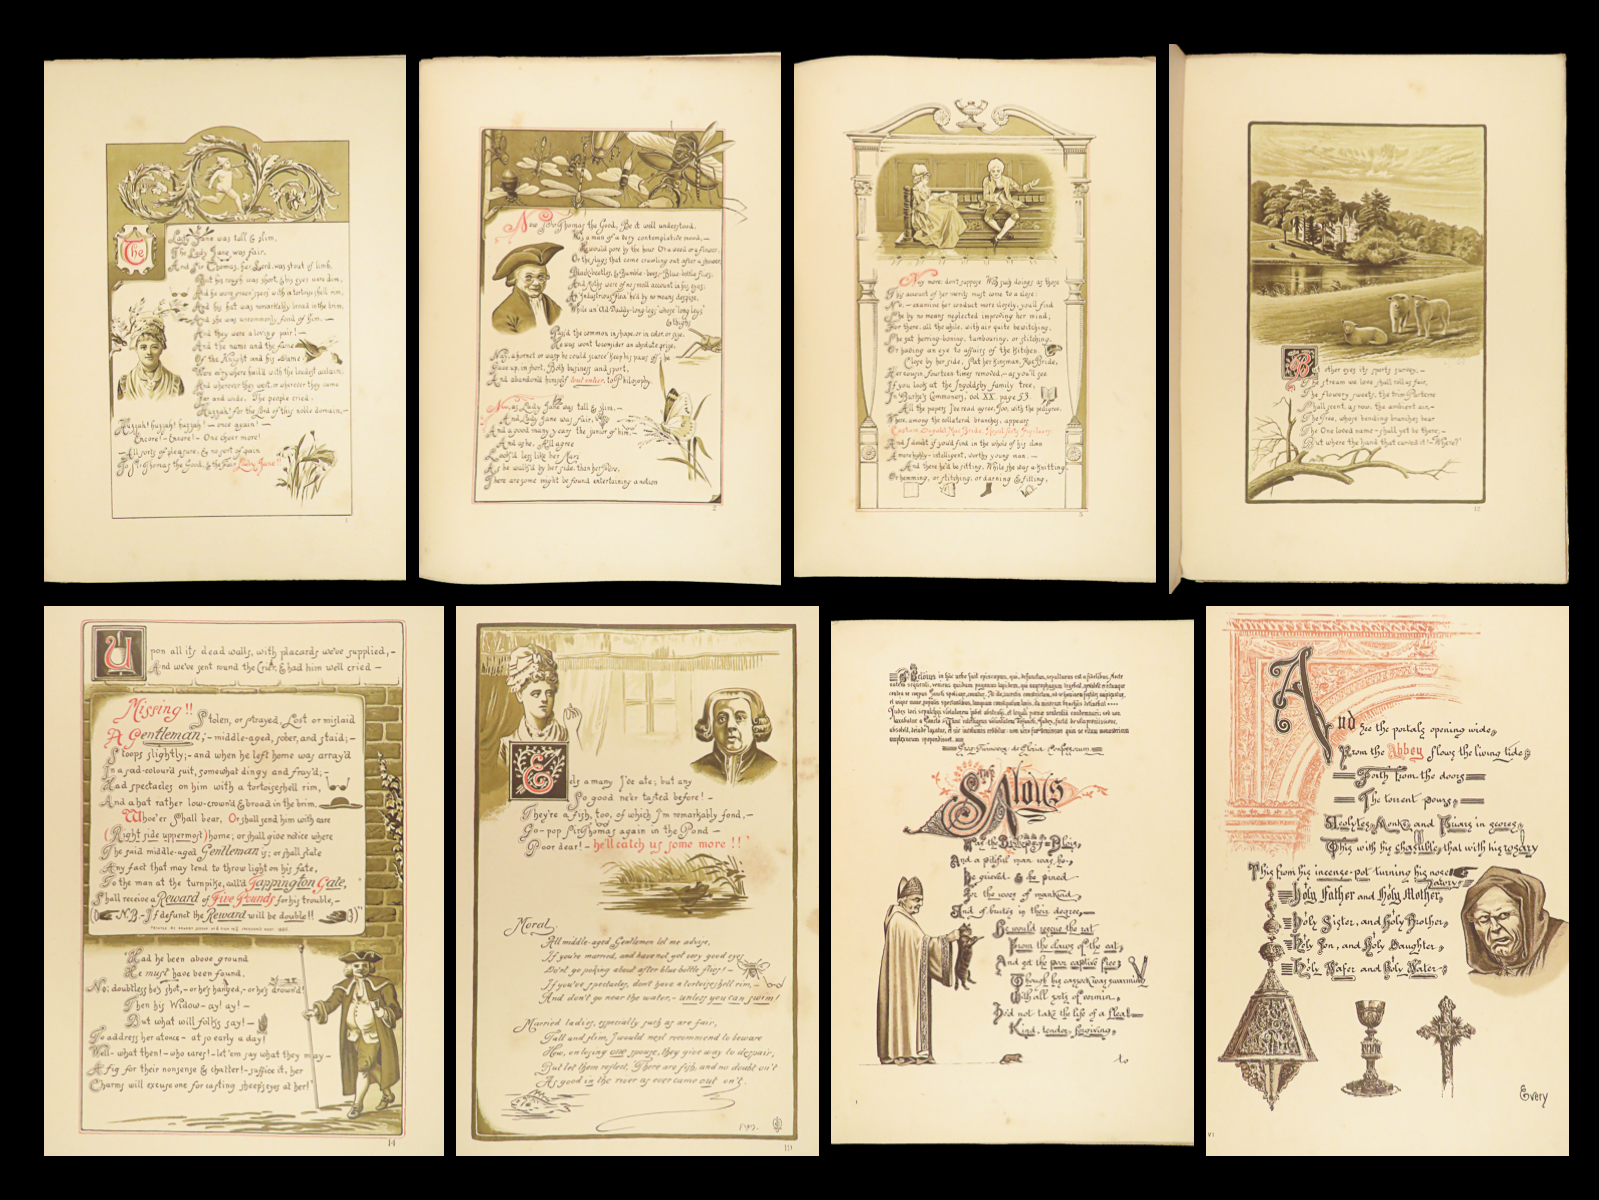 The
Lady Jane was tall & slim,
The Lady Jane was fair,
And Sir Thomas, her Lord, was stout of limb,
But his cough was short, & his eyes were dim,
And he wore green "specs" with a tortoise shell rim,
And his hat was remarkably broad in the brim,
And she was uncommonly fond of him, —
And they were a loving pair! —
And the name and the fame
Of the Knight and his Dame
Were ev'rywhere hail'd with the loudest acclaim,
And wherever they went, or wherever they came
Far and wide, The people cried,
Huzzah! for the Lord of this noble domain, —
Huzzah! huzzah! huzzah! — once again! —
Encore! — Encore! — One cheer more!
— All sorts of pleasure, & no sort of pain
To Sir Thomas the Good, & the Fair Lady Jane!
1
Now Sir Thomas the Good, Be it well understood,
Was a man of a very contemplative mood, —
He would pore by the hour O'er a weed or a flower,
Or the slugs that come crawling out after a shower,
Black-beetles, & Bumble-bees, — Blue-bottle flies,
And Moths were of no small account in his eyes;
An "Industrious Flea" he'd by no means despise,
While an "Old Daddy-long legs" whose "long legs"
& thighs
Pass'd the common in shape, or in color, or size,
He was wont to consider an absolute prize,
Nay, a hornet or wasp he could scarce "keep his paws off", he
Gave up, in short, Both business and sport,
And abandon'd himself tout entier, to Philosophy.
Now, as Lady Jane was tall & slim, —
And Lady Jane was fair,
And a good many years the junior of him, —
And as he, All agree
Look'd less like her Mari,
As he walk'd by her side, than her Père,
There are some might be found entertaining a notion
2
Nay more: don't suppose With such doings as those
This account of her merits must come to a close;
No, — examine her conduct more closely, you'll find
She by no means neglected improving her mind,
For there, all the while, with air quite bewitching,
She sat herring-boning, tambouring, or stitching,
Or having an eye to affairs of the Kitchen
Close by her side, Sat her Kinsman, MacBride,
Her cousin fourteen times removed, — as you'll see
If you look at the Ingoldsby family tree,
In "Burke's Commoners", vol XX. page 53.
All the papers I've read agree, Too, with the pedigree,
Where, among the collateral branches, appears
"Captain Dugald MacBride, Royal Scots Fusileers"
And I doubt if you'd find in the whole of his clan
A more highly-intelligent, worthy young man. —
And there he'd be sitting, While she was a Knitting,
Or hemming, or stitching, or darning & fitting,
But other eyes its sports survey, —
The stream we love shall roll as fair,
The flowery sweets, the trim Parterre
Shall scent, as now, the ambient air,—
The tree, whose bending branches bear
The One loved name — shall yet be there; —
But where the hand that carved it? — "Where?"
12
Upon all its dead walls, with placards we've supplied, —
And we've sent round the Crier, & had him well cried —
Missing!! Stolen, or strayed, Lost or mislaid
A Gentleman; — middle-aged, sober, and staid; —
Stoops slightly; — and when he left home was array'd
In a sad-colour'd suit, somewhat dingy and fray'd; —
Had spectacles on him with a tortoiseshell rim,
And a hat rather low-crown'd & broad in the brim.
Whoe'er Shall bear, Or shall send him with care
(Right side uppermost) home; or shall give notice where
The said middle-aged Gentleman is; or shall state
Any fact that may tend to throw light on his fate,
To the man at the turnpike, call'd Tappington Gate,
Shall receive a Reward of Five Pounds for his trouble, —
(N.B. — If defunct the Reward will be double!!)"
"Had he been above ground
He must have been found.
No; doubtless he's shot, — or he's hanged, — or he's drown'd!
Then his Widow — ay! ay! —
But what will folks say! —
To address her at once — at so early a day!
Well — what then! — who cares! — let 'em say what they may —
A fig for their nonsense & chatter! — suffice it, her
Charms will excuse one for casting sheep's eyes at her!"
14
Eels a many I've ate; but any
So good ne'er tasted before! —
They're a fish, too, of which I'm remarkably fond. —
Go — pop Sir Thomas again in the Pond —
Poor dear! — he'll catch us some more!!
Moral.
All middle-aged Gentlemen let me advise,
If you're married, and have not got very good eyes,
Don't go poking about after blue bottle flies! —
If you've spectacles, don't have a tortoiseshell rim, —
And don't go near the water, — unless you can swim!
Married ladies, especially such as are fair,
Tall and slim, I would next recommend to beware
How, on losing one spouse, they give way to despair,
But let them reflect, There are fish, and no doubt on't
As good in the river as ever came out on't.
19
The
S Aloys
was the Bishop of Blois,
And a pitiful man was he,
He grieved & he pined
For the woes of mankind
And of brutes in their degree,—
He would rescue the rat
From the claws of the cat,
And set the poor captive free;
Though his cassock was swarming
With all sorts of vermin,
He'd not take the life of a flea!—
Kind, tender, forgiving,
And see the portals opening wide,
From the Abbey flows the living tide;
Forth from the doors
The torrent pours,
Acolytes, Monks, and Friars in scores,
This with his chasuble, that with his rosary
This from his incense-pot turning his nose
Holy Father and Holy Mother,
Holy Sister, and Holy Brother,
Holy Son, and Holy Daughter,
Holy Wafer and Holy Water,
Every
VI